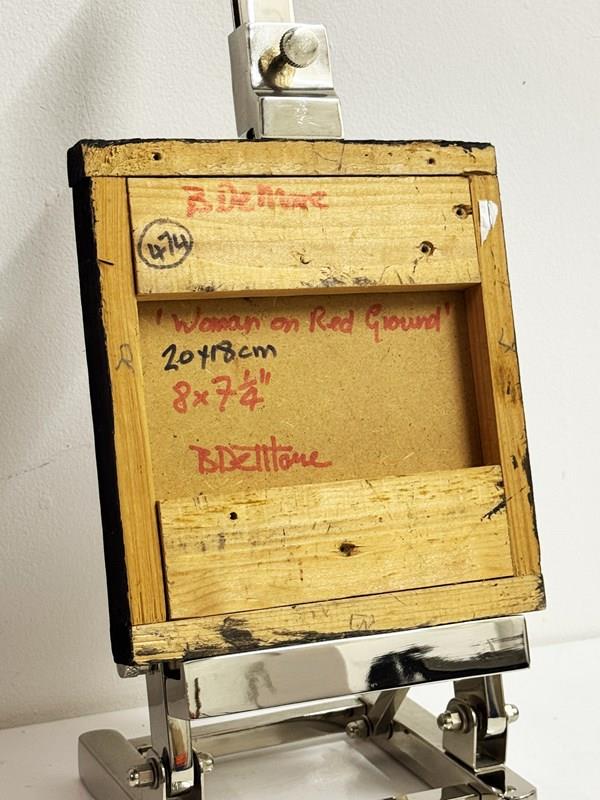 B DeMare
474
'Woman on Red Ground'
20x18cm
8x7¼"